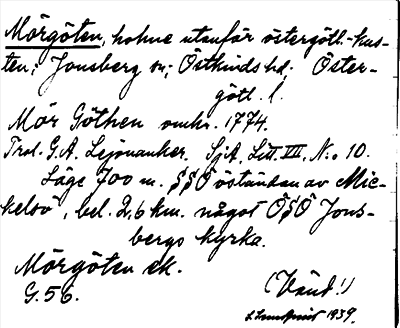 Mörgöten, holme utanför östergötl.-kus-
ten; Jonsberg sn; Östkinds hd; Öster-
götl. l.
Mör Göthen omkr. 1774.
Trol. G.A. Lejonanker. SjA, Litt. VII, N:o 10.
Läge 700 m. SSÖ öständan av Mic-
kelsö, bel. 2,6 km. något ÖSÖ Jons-
bergs kyrka.
Mörgöten ek.
G.56.
(Vänd!)
1939.